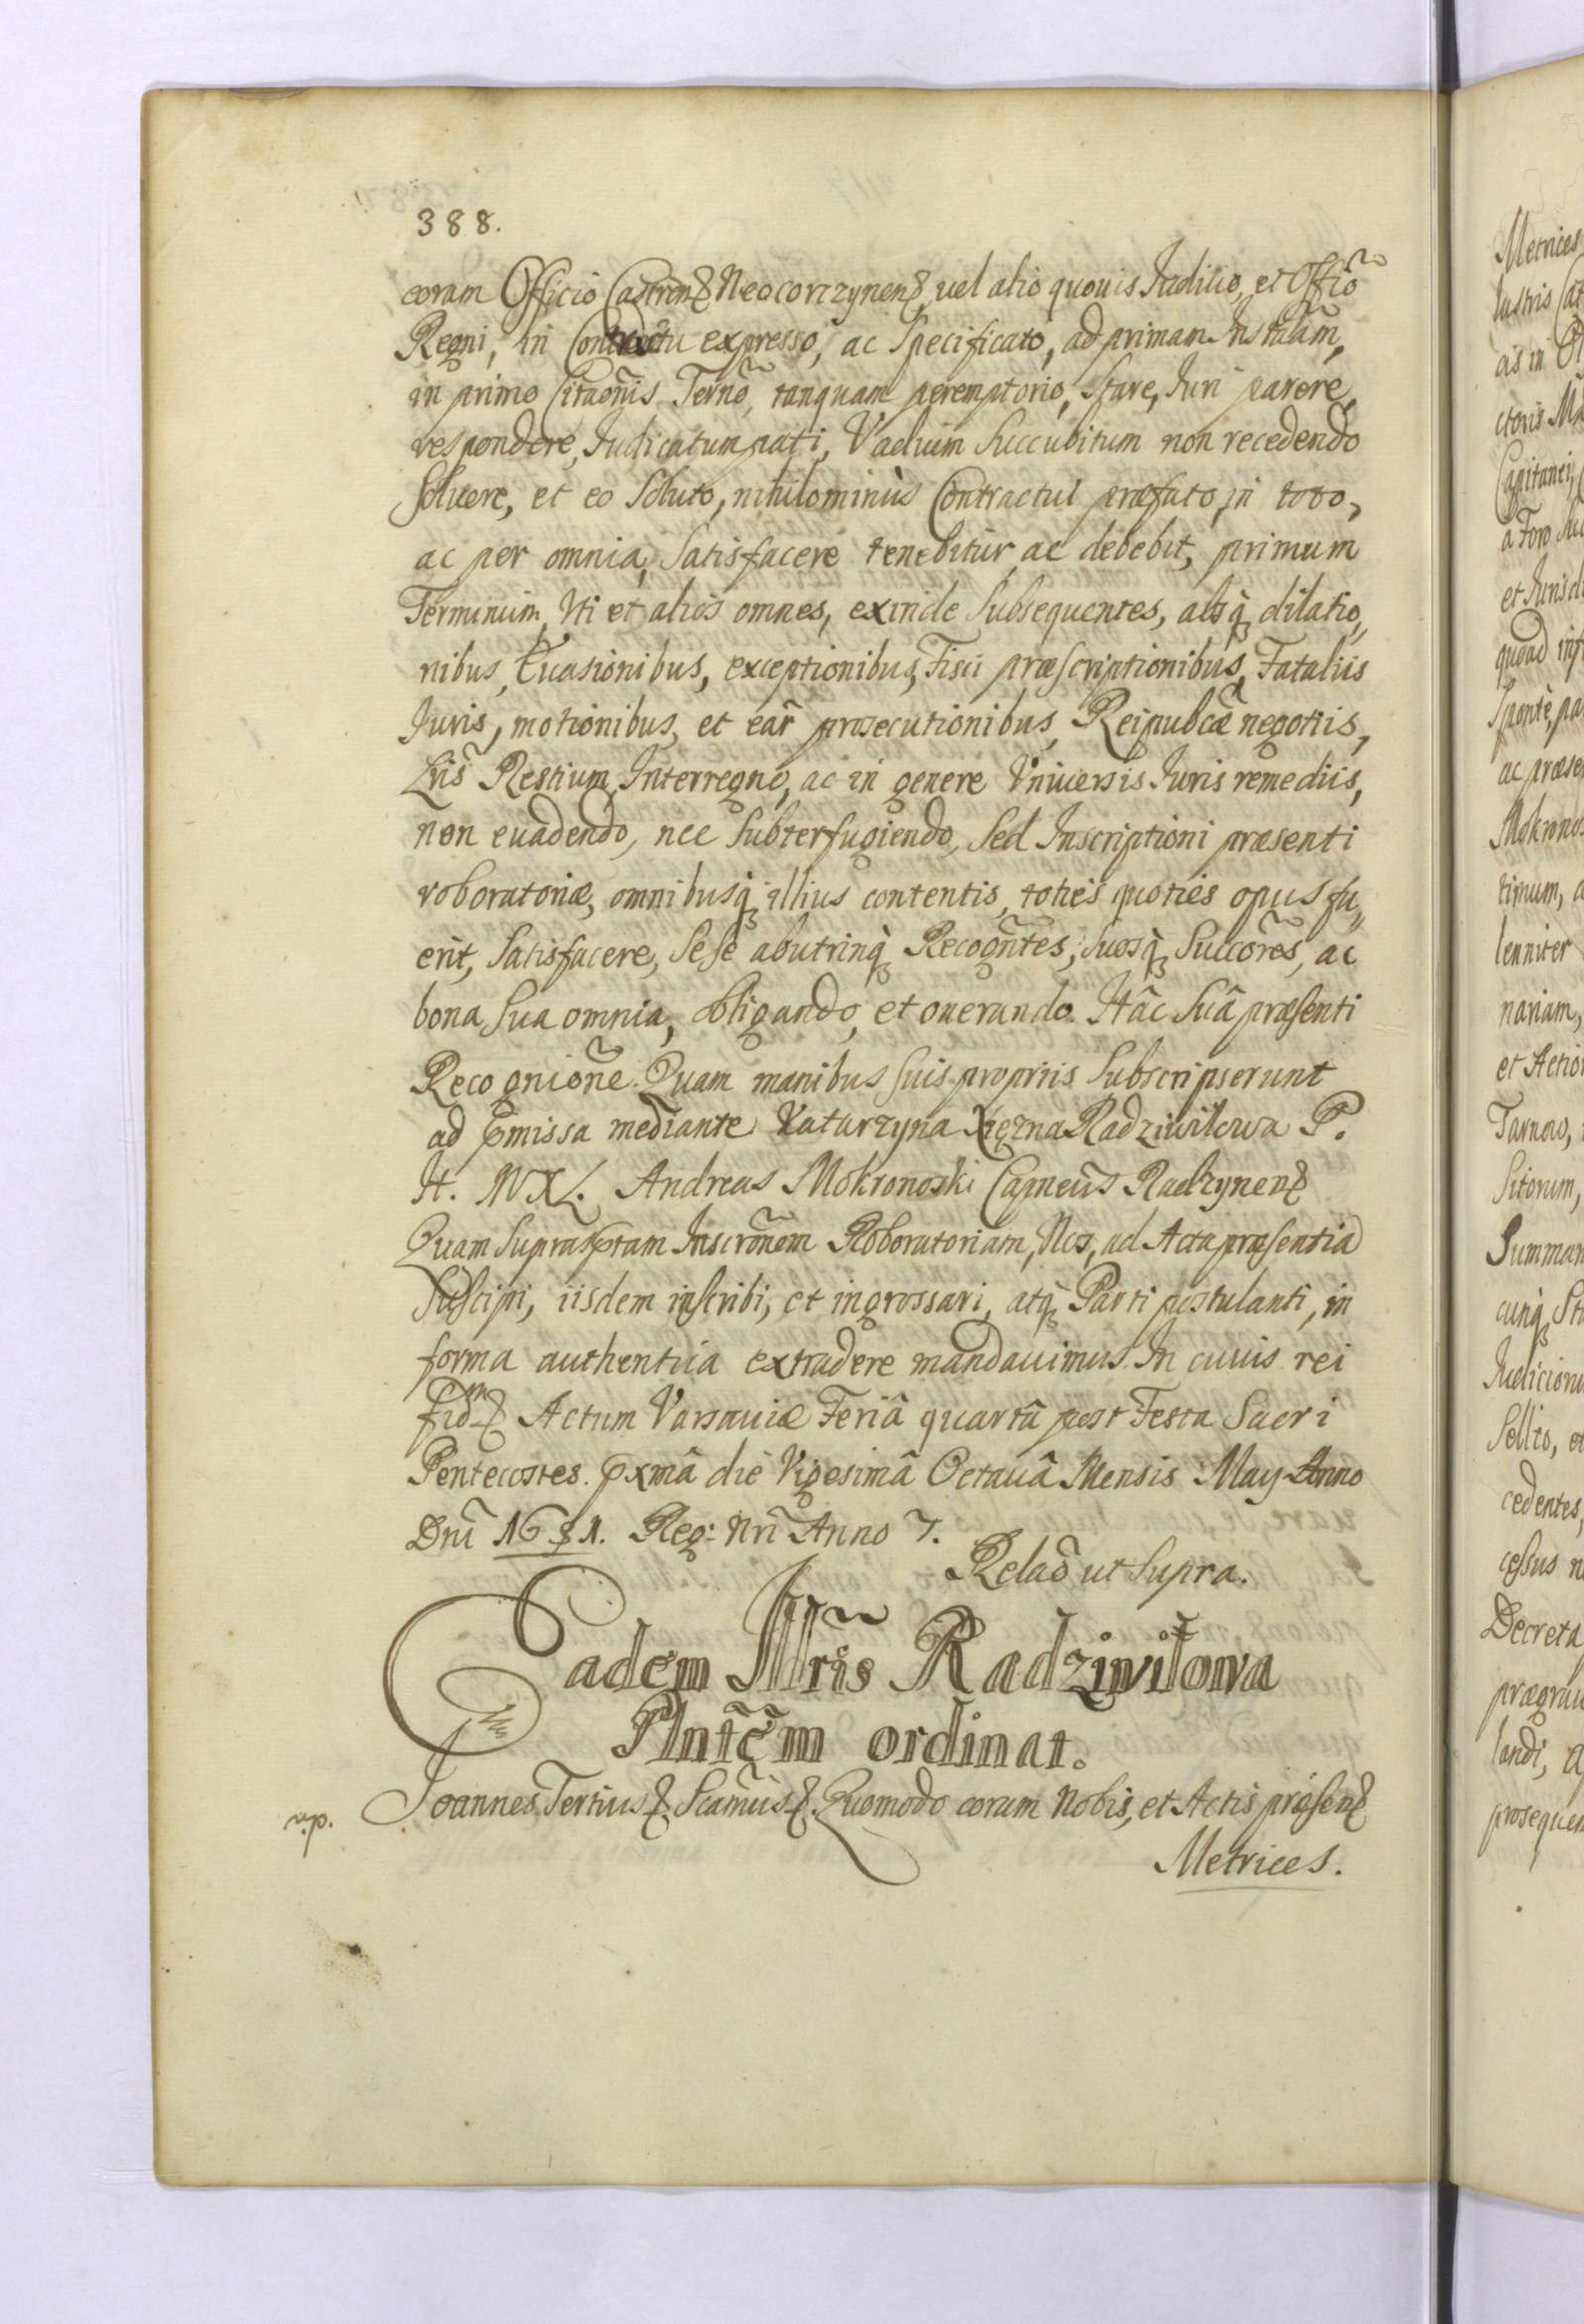 388.
coram Officio Castren Neocorczynen, uel alio quouis Iudicio, et Offio͂
Regni, in Contractu expresso, ac Specificato, ad primam Instãm,
in primo Citaõnis Terno͂, tanquam peremptorio, Stare, Iuri parere,
respondere, Iudicatum pati, Vadium Succubitum non recedendo
Soluere, et eo Soluto, nihilominùs Contractui præfato, in toto,
ac per omnia, Satisfacere tenebitur ac debebit, primum
Terminum, Uti et alios omnes, exinde Subsequentes, absq̢ dilatio„
nibus, Euasionibus, exceptionibus, Fisci præscriptionibus, Fataliis
Iuris, motionibus, et eãr prosecutionibus, Reipublcæ negotiis,
Lris͂ Restium, Interregno, ac in genere Vniuersis Iuris remediis,
non euadendo, nec Subterfugiendo, Sed Inscriptioni præsenti
roboratoriæ, omnibusq̢ illius contentis, toties quoties opus fu„
erit, Satisfacere, Sese abutrinq̢ Recogñtes, Suosq̢ Succores͂, ac
bona Sua omnia, obligando, et onerando. Hâc Suâ præsenti
Recognione͂. Quam manibus Suis propriis Subscripserunt
ad p̃missa mediante Katarzyna Xięzna Radziwiłowa P.
H. W X L. Andreas Mokronoski Capneus͂ Radzynen
Quam Suprasc̃ptam Inscronem͂ Roboratoriam, Nos, ad Acta præsentia
Suscipi, iisdem inscribi, et ingrossari, atq̢ Parti postulanti, in
forma authentica extradere mandauimus. In cuius rei
fidm Actum Varsauiæ Feriâ quartâ post Festa Sacri
Pentecostes. p̃xmâ die Vigesimâ Octauâ Mensis May Anno
Dni͂ 1681. Reg: Nri͂ Anno 7.
Relaõ ut Supra.
Eadem Illris͂ Radziwiłowa
Plnĩc̃m ordinat.
r.p. Joannes Tertius Scamus͂ Quomodo coram Nobis, et Actis præsen
Metrices.